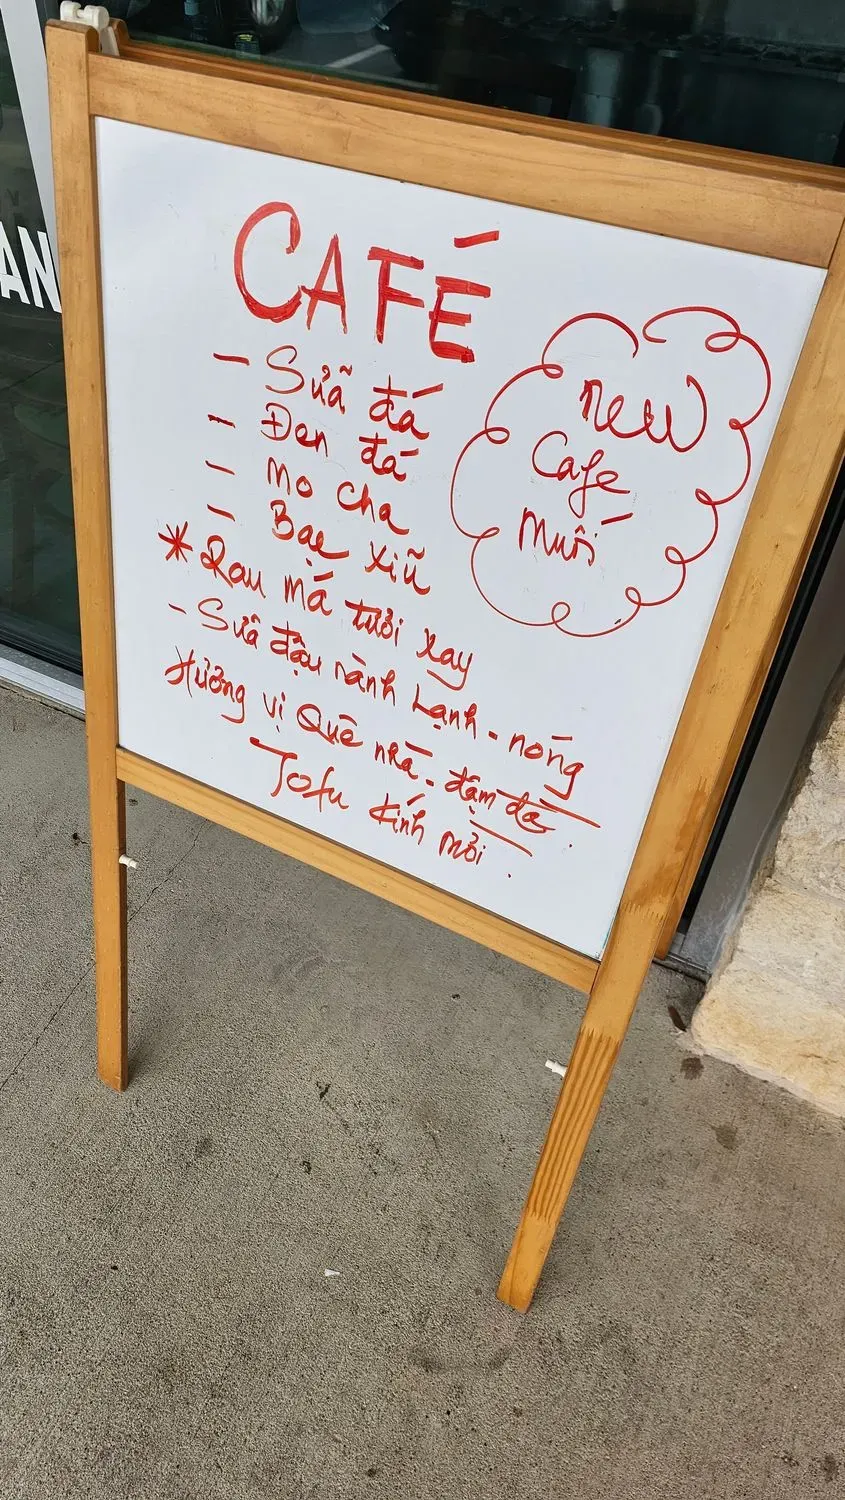 CAFÉ
- Sữa đá
- Đen đá
- Mo cha
- Bạc xiũ
new
Cafe
Muối
* Rau má tươi xay
- Sữa đậu nành Lạnh - nóng
Hương vị Quê nhà - đậm đà.
Tofu kính mời.
AN